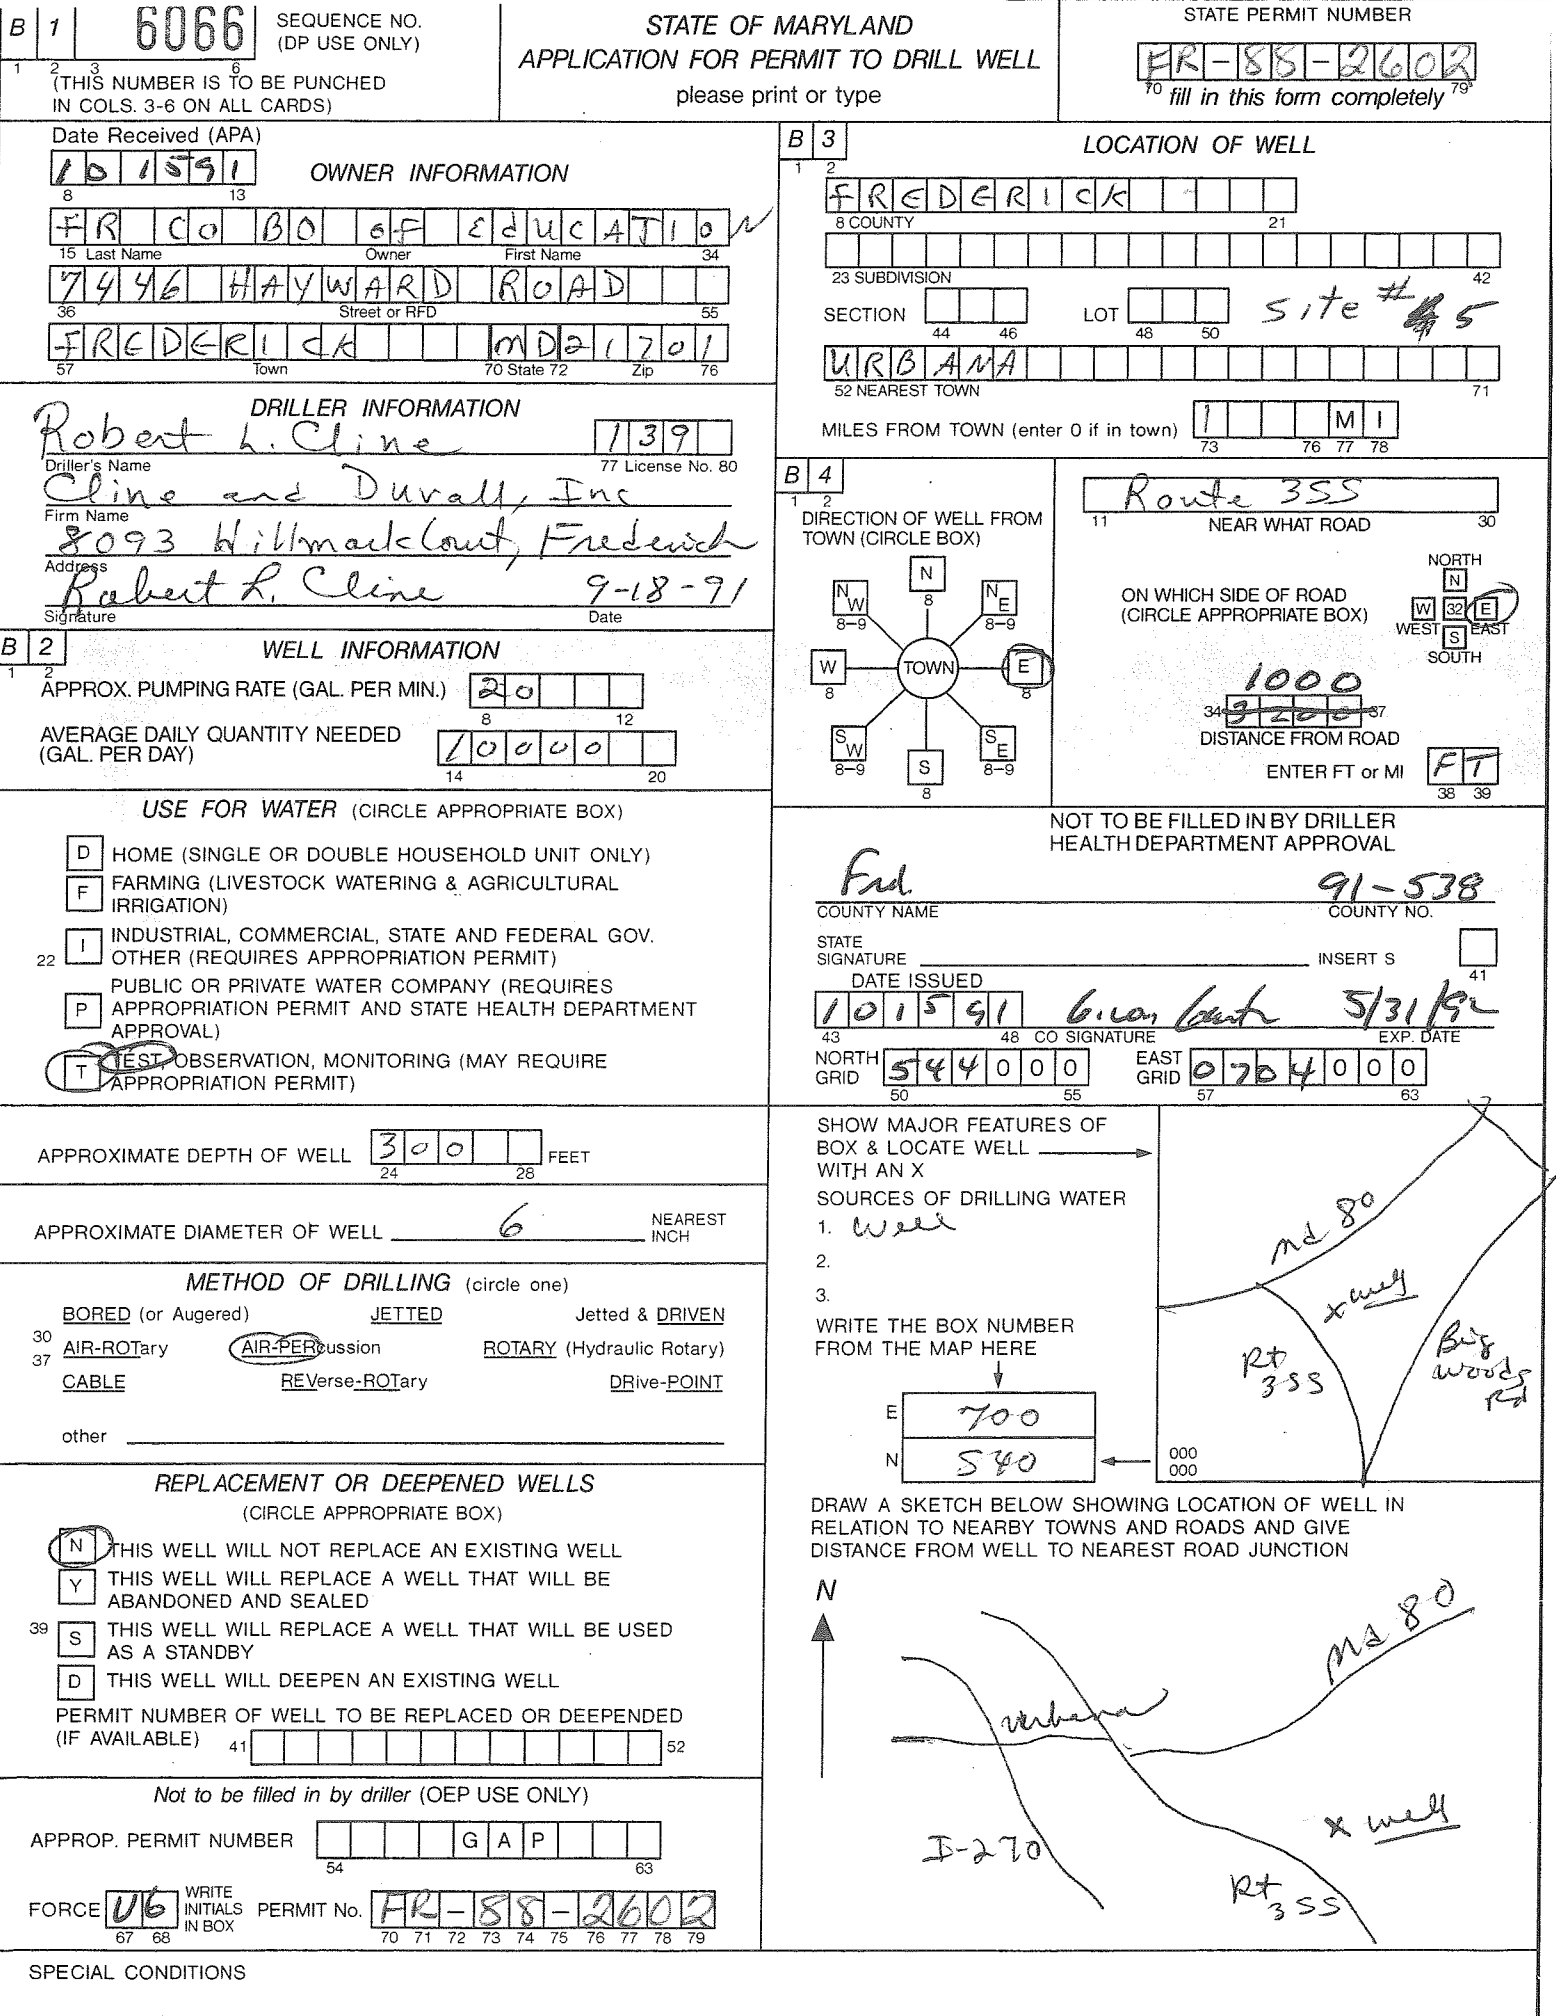 B 1 6066 SEQUENCE NO. (DP USE ONLY)
1 2 3 6
(THIS NUMBER IS TO BE PUNCHED
IN COLS. 3-6 ON ALL CARDS)
STATE OF MARYLAND
APPLICATION FOR PERMIT TO DRILL WELL
please print or type
STATE PERMIT NUMBER
FR-88-2602
70 fill in this form completely 79
Date Received (APA)
10 15 91
8 13
OWNER INFORMATION
FR CO BO OF EDUCATION
15 Last Name Owner First Name 34
7446 HAYWARD ROAD
36 Street or RFD 55
FREDERICK MD 21701
57 Town 70 State 72 Zip 76
DRILLER INFORMATION
Robert L. Cline 139
Driller's Name 77 License No. 80
Cline and Duvall, Inc
Firm Name
8093 Hillmark Court, Frederick
Address
Robert L. Cline 9-18-91
Signature Date
B 2 WELL INFORMATION
1 2
APPROX. PUMPING RATE (GAL. PER MIN.) 20
8 12
AVERAGE DAILY QUANTITY NEEDED
(GAL. PER DAY) 10000
14 20
USE FOR WATER (CIRCLE APPROPRIATE BOX)
D HOME (SINGLE OR DOUBLE HOUSEHOLD UNIT ONLY)
F FARMING (LIVESTOCK WATERING & AGRICULTURAL
IRRIGATION)
22 I INDUSTRIAL, COMMERCIAL, STATE AND FEDERAL GOV.
OTHER (REQUIRES APPROPRIATION PERMIT)
P PUBLIC OR PRIVATE WATER COMPANY (REQUIRES
APPROPRIATION PERMIT AND STATE HEALTH DEPARTMENT
APPROVAL)
T TEST OBSERVATION, MONITORING (MAY REQUIRE
APPROPRIATION PERMIT)
APPROXIMATE DEPTH OF WELL 300 FEET
24 28
APPROXIMATE DIAMETER OF WELL 6 NEAREST INCH
METHOD OF DRILLING (circle one)
BORED (or Augered) JETTED Jetted & DRIVEN
30
37
AIR-ROTary AIR-PERcussion ROTARY (Hydraulic Rotary)
CABLE REVerse-ROTary DRive-POINT
other
REPLACEMENT OR DEEPENED WELLS
(CIRCLE APPROPRIATE BOX)
N THIS WELL WILL NOT REPLACE AN EXISTING WELL
Y THIS WELL WILL REPLACE A WELL THAT WILL BE
ABANDONED AND SEALED
39 S THIS WELL WILL REPLACE A WELL THAT WILL BE USED
AS A STANDBY
D THIS WELL WILL DEEPEN AN EXISTING WELL
PERMIT NUMBER OF WELL TO BE REPLACED OR DEEPENDED
(IF AVAILABLE) 41 52
Not to be filled in by driller (OEP USE ONLY)
APPROP. PERMIT NUMBER G A P
54 63
FORCE U6 WRITE INITIALS IN BOX PERMIT No. FR-88-2602
67 68 70 71 72 73 74 75 76 77 78 79
SPECIAL CONDITIONS
B 3 LOCATION OF WELL
1 2
FREDERICK
8 COUNTY 21
23 SUBDIVISION 42
SECTION LOT Site # 5
44 46 48 50
URBANA
52 NEAREST TOWN 71
MILES FROM TOWN (enter 0 if in town) 1 M I
73 76 77 78
B 4
1 2
DIRECTION OF WELL FROM
TOWN (CIRCLE BOX)
N
8
NW NE
8-9 8-9
W TOWN E
8 8
SW SE
8-9 8-9
S
8
Route 355
11 NEAR WHAT ROAD 30
ON WHICH SIDE OF ROAD
(CIRCLE APPROPRIATE BOX)
NORTH
N
W 32 E
WEST EAST
S
SOUTH
1000
34 3200 37
DISTANCE FROM ROAD
ENTER FT or MI FT
38 39
NOT TO BE FILLED IN BY DRILLER
HEALTH DEPARTMENT APPROVAL
Frd. 91-538
COUNTY NAME COUNTY NO.
STATE
SIGNATURE INSERT S
41
DATE ISSUED
101591 5/31/92
43 48 CO SIGNATURE EXP. DATE
NORTH GRID 544000 EAST GRID 0704000
50 55 57 63
SHOW MAJOR FEATURES OF
BOX & LOCATE WELL
WITH AN X
SOURCES OF DRILLING WATER
1. Well
2.
3.
WRITE THE BOX NUMBER
FROM THE MAP HERE
E 700
N 540
000
000
Md 80
x well
Rt 355
Big Woods Rd
DRAW A SKETCH BELOW SHOWING LOCATION OF WELL IN
RELATION TO NEARBY TOWNS AND ROADS AND GIVE
DISTANCE FROM WELL TO NEAREST ROAD JUNCTION
N
Md 80
Urbana
x well
I-270
Rt 355